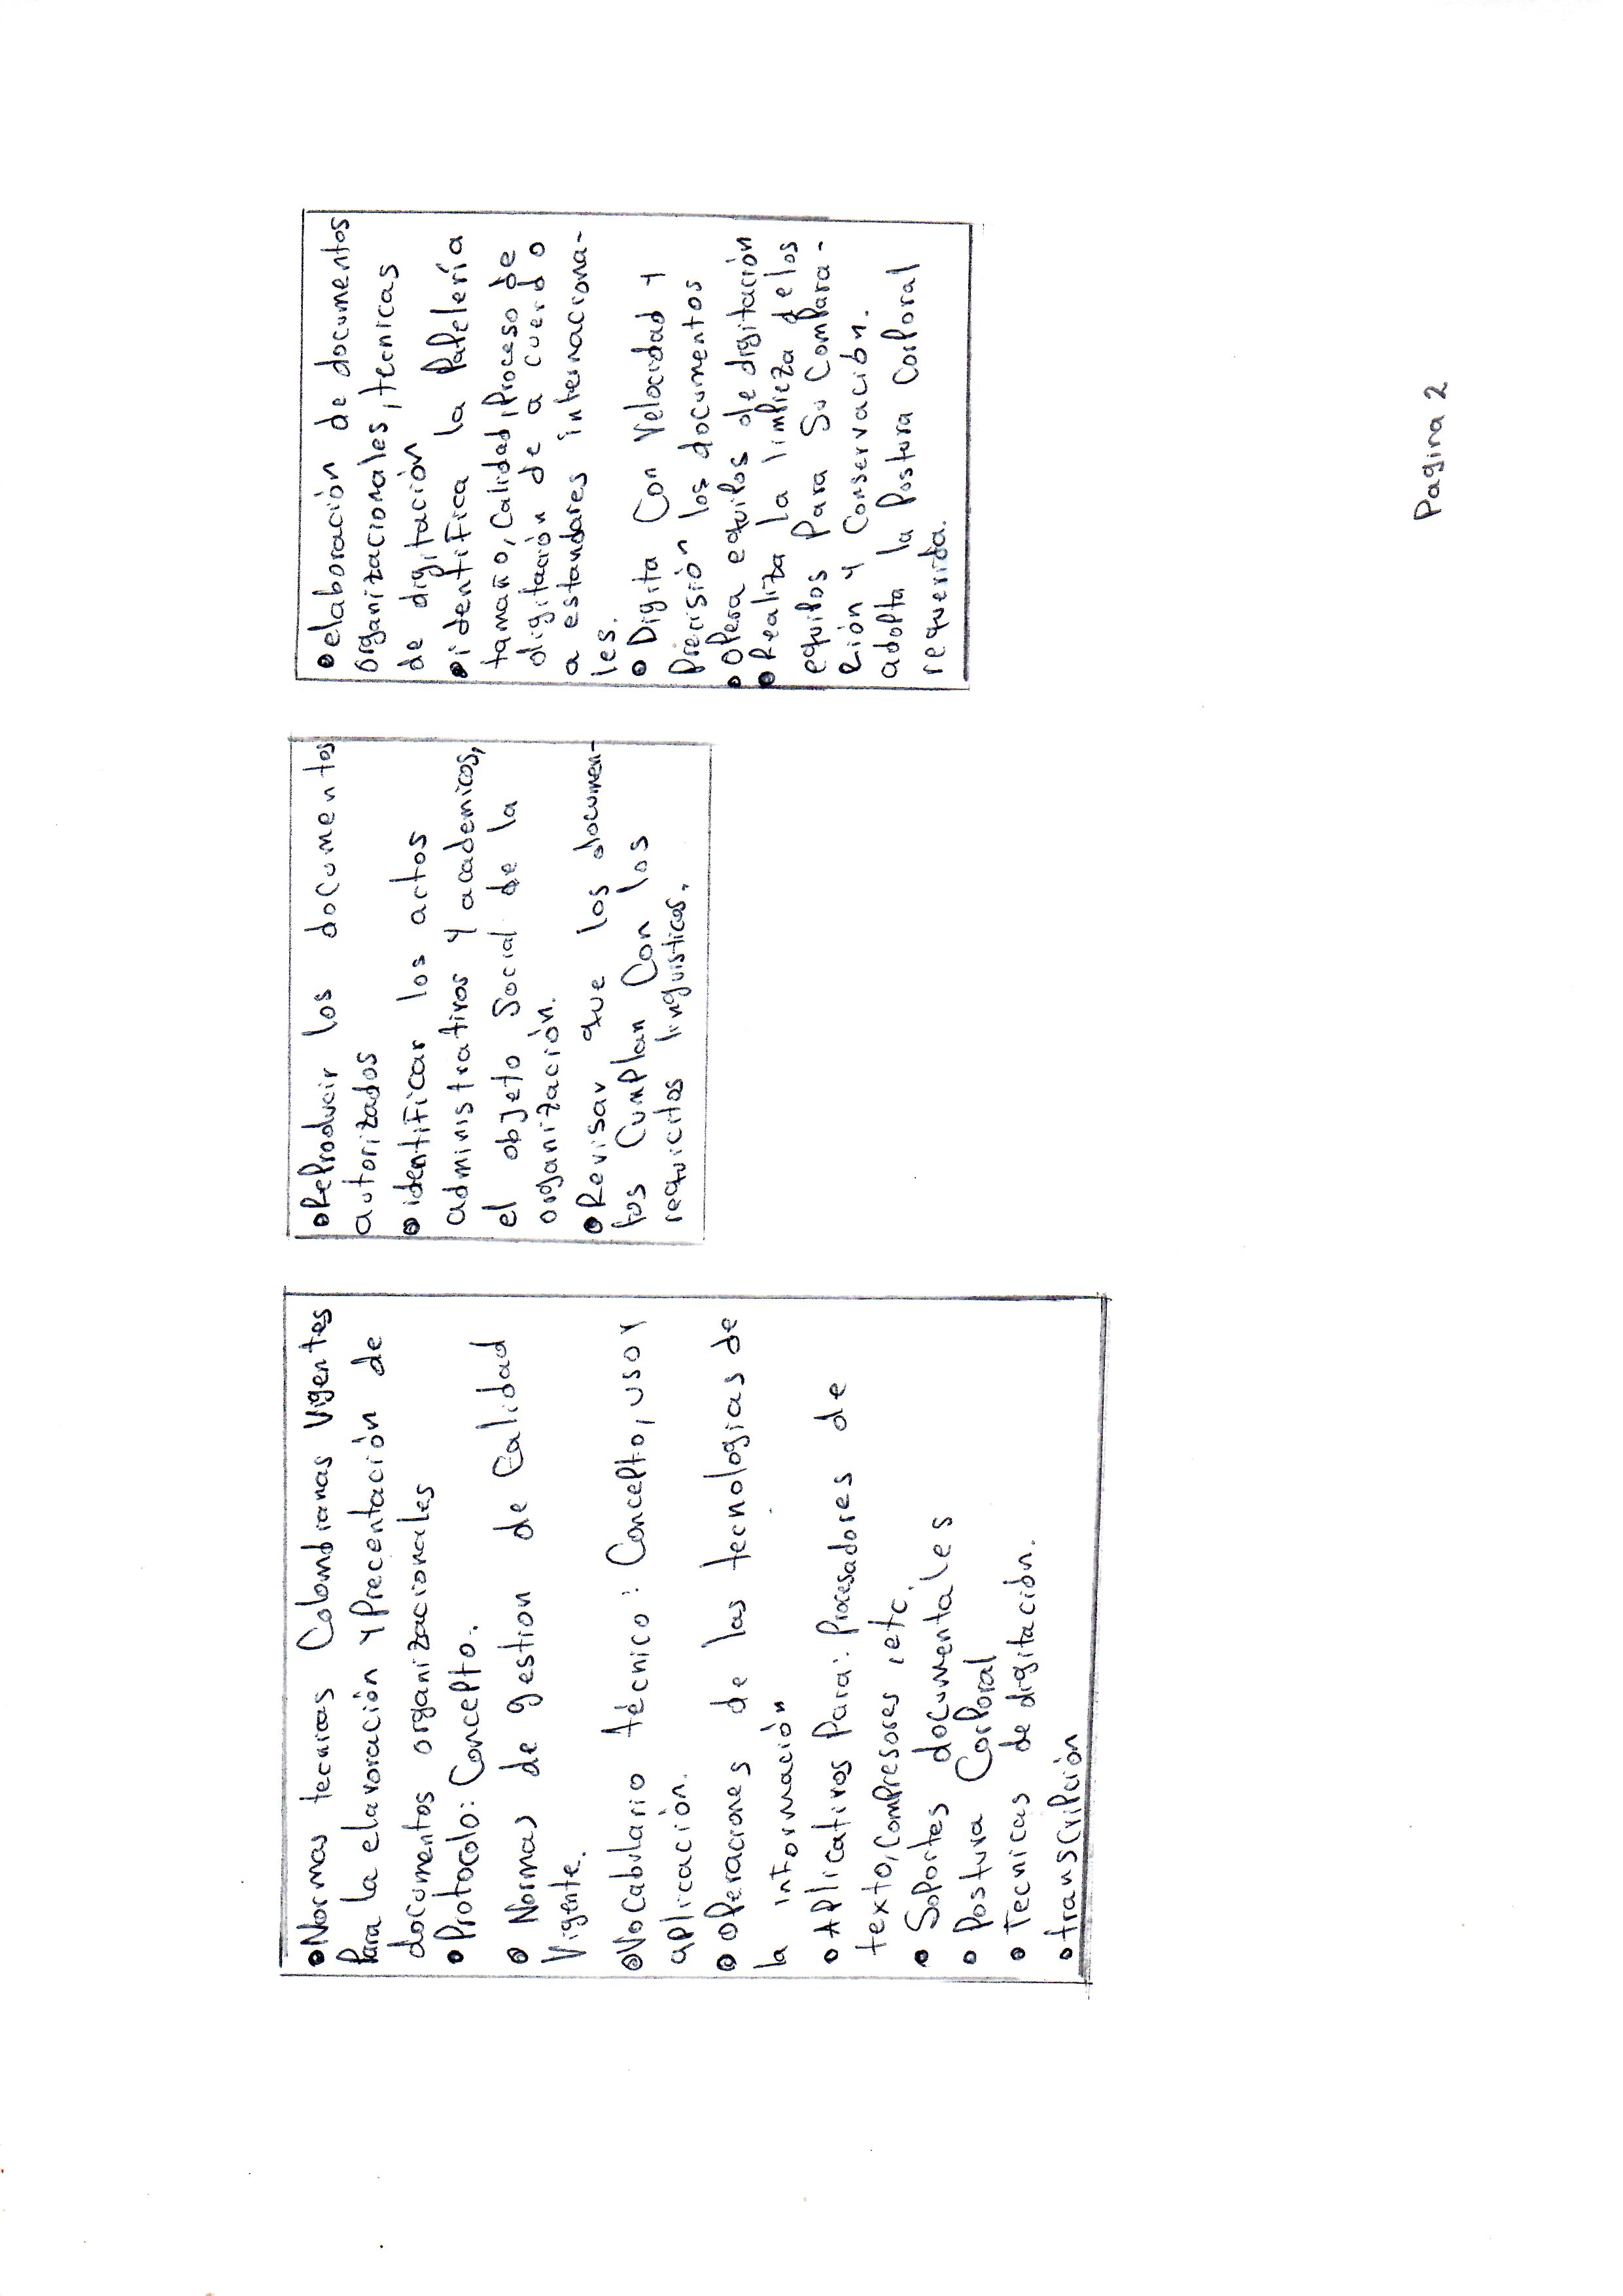 •Normas tecnicas Colombianas Vigentes
Para la elavoración y Precentación de
documentos organizacionales
•Protocolo: Concepto.
• Normas de gestion de Calidad
Vigente.
•Vocabulario técnico: Concepto, uso y
aplicación.
• operaciones de las tecnologias de
la información
• Aplicativos Para: Procesadores de
texto, Compresores, etc.
• Soportes documentales
• Postura Corporal
• Tecnicas de digitación.
• transcripción
•Reproducir los documentos
autorizados
• identificar los actos
administrativos y academicos,
el objeto Social de la
organización.
•Revisar que los documen-
tos Cumplan Con los
requicitos linguisticos.
•elaboración de documentos
organizacionales, tecnicas
de digitación
•identifica la Papelería
tamaño, Calidad, Proceso de
digitación de a cuerdo
a estandares internaciona-
les.
• Digita Con Velocidad y
Precisión los documentos
• Opera equipos de digitación
• Realiza la limpieza de los
equipos Para Su Compara-
ción y Conservación.
adopta la Postura Corporal
requerida.
Pagina 2